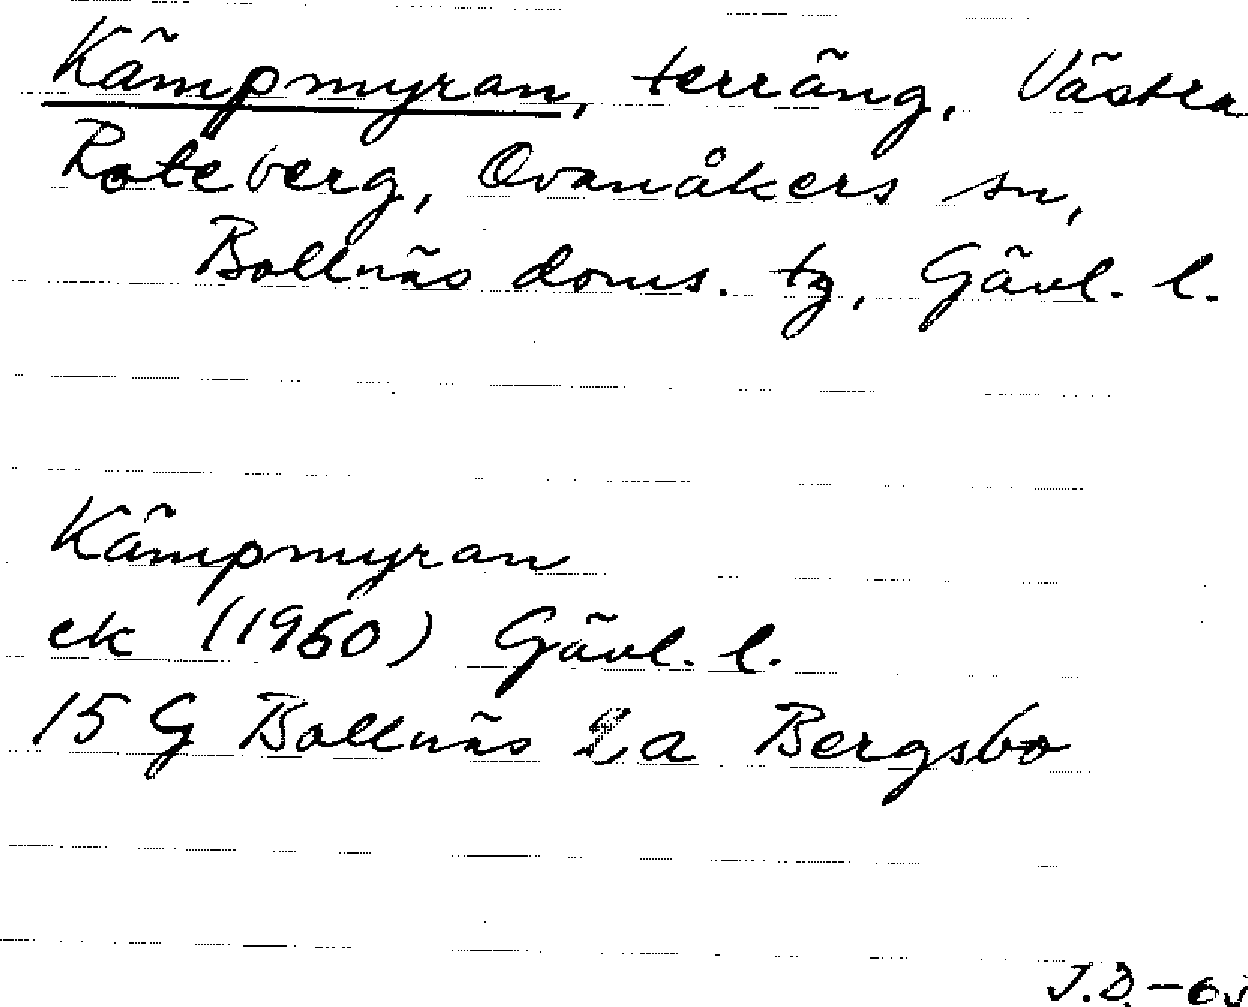 Kämpmyran, terräng, Västra
Roteberg, Ovanåkers sn,
Bollnäs doms. tg, Gävl. l.
Kämpmyran
ek (1960) Gävl. l.
15 G Bollnäs 2 a Bergsbo
J.D.-